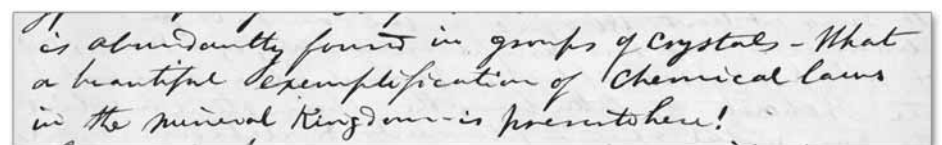 is abundantly found in groups of crystals - What
a beautiful exemplification of chemical laws
in the mineral Kingdom - is present here!